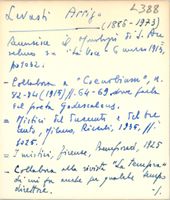 Levasti Arrigo L388
(1886-1973)
Recensisce il Monologio di S. An
selmo su "La Voce" 6 marzo 1913,
p. 1032.
- Collabora a "Coenobium", n.
64-69 dove parla
del poeta Godescalcus.
= Mistici del Duecento e del Tre
cento, Milano, Rizzoli, 1935, pp.
1025.
= I mistici, Firenze, Bemporad, 1925
- Collabora alla rivista "La Tempra"
di cui fu anche per qualche tempo
direttore.